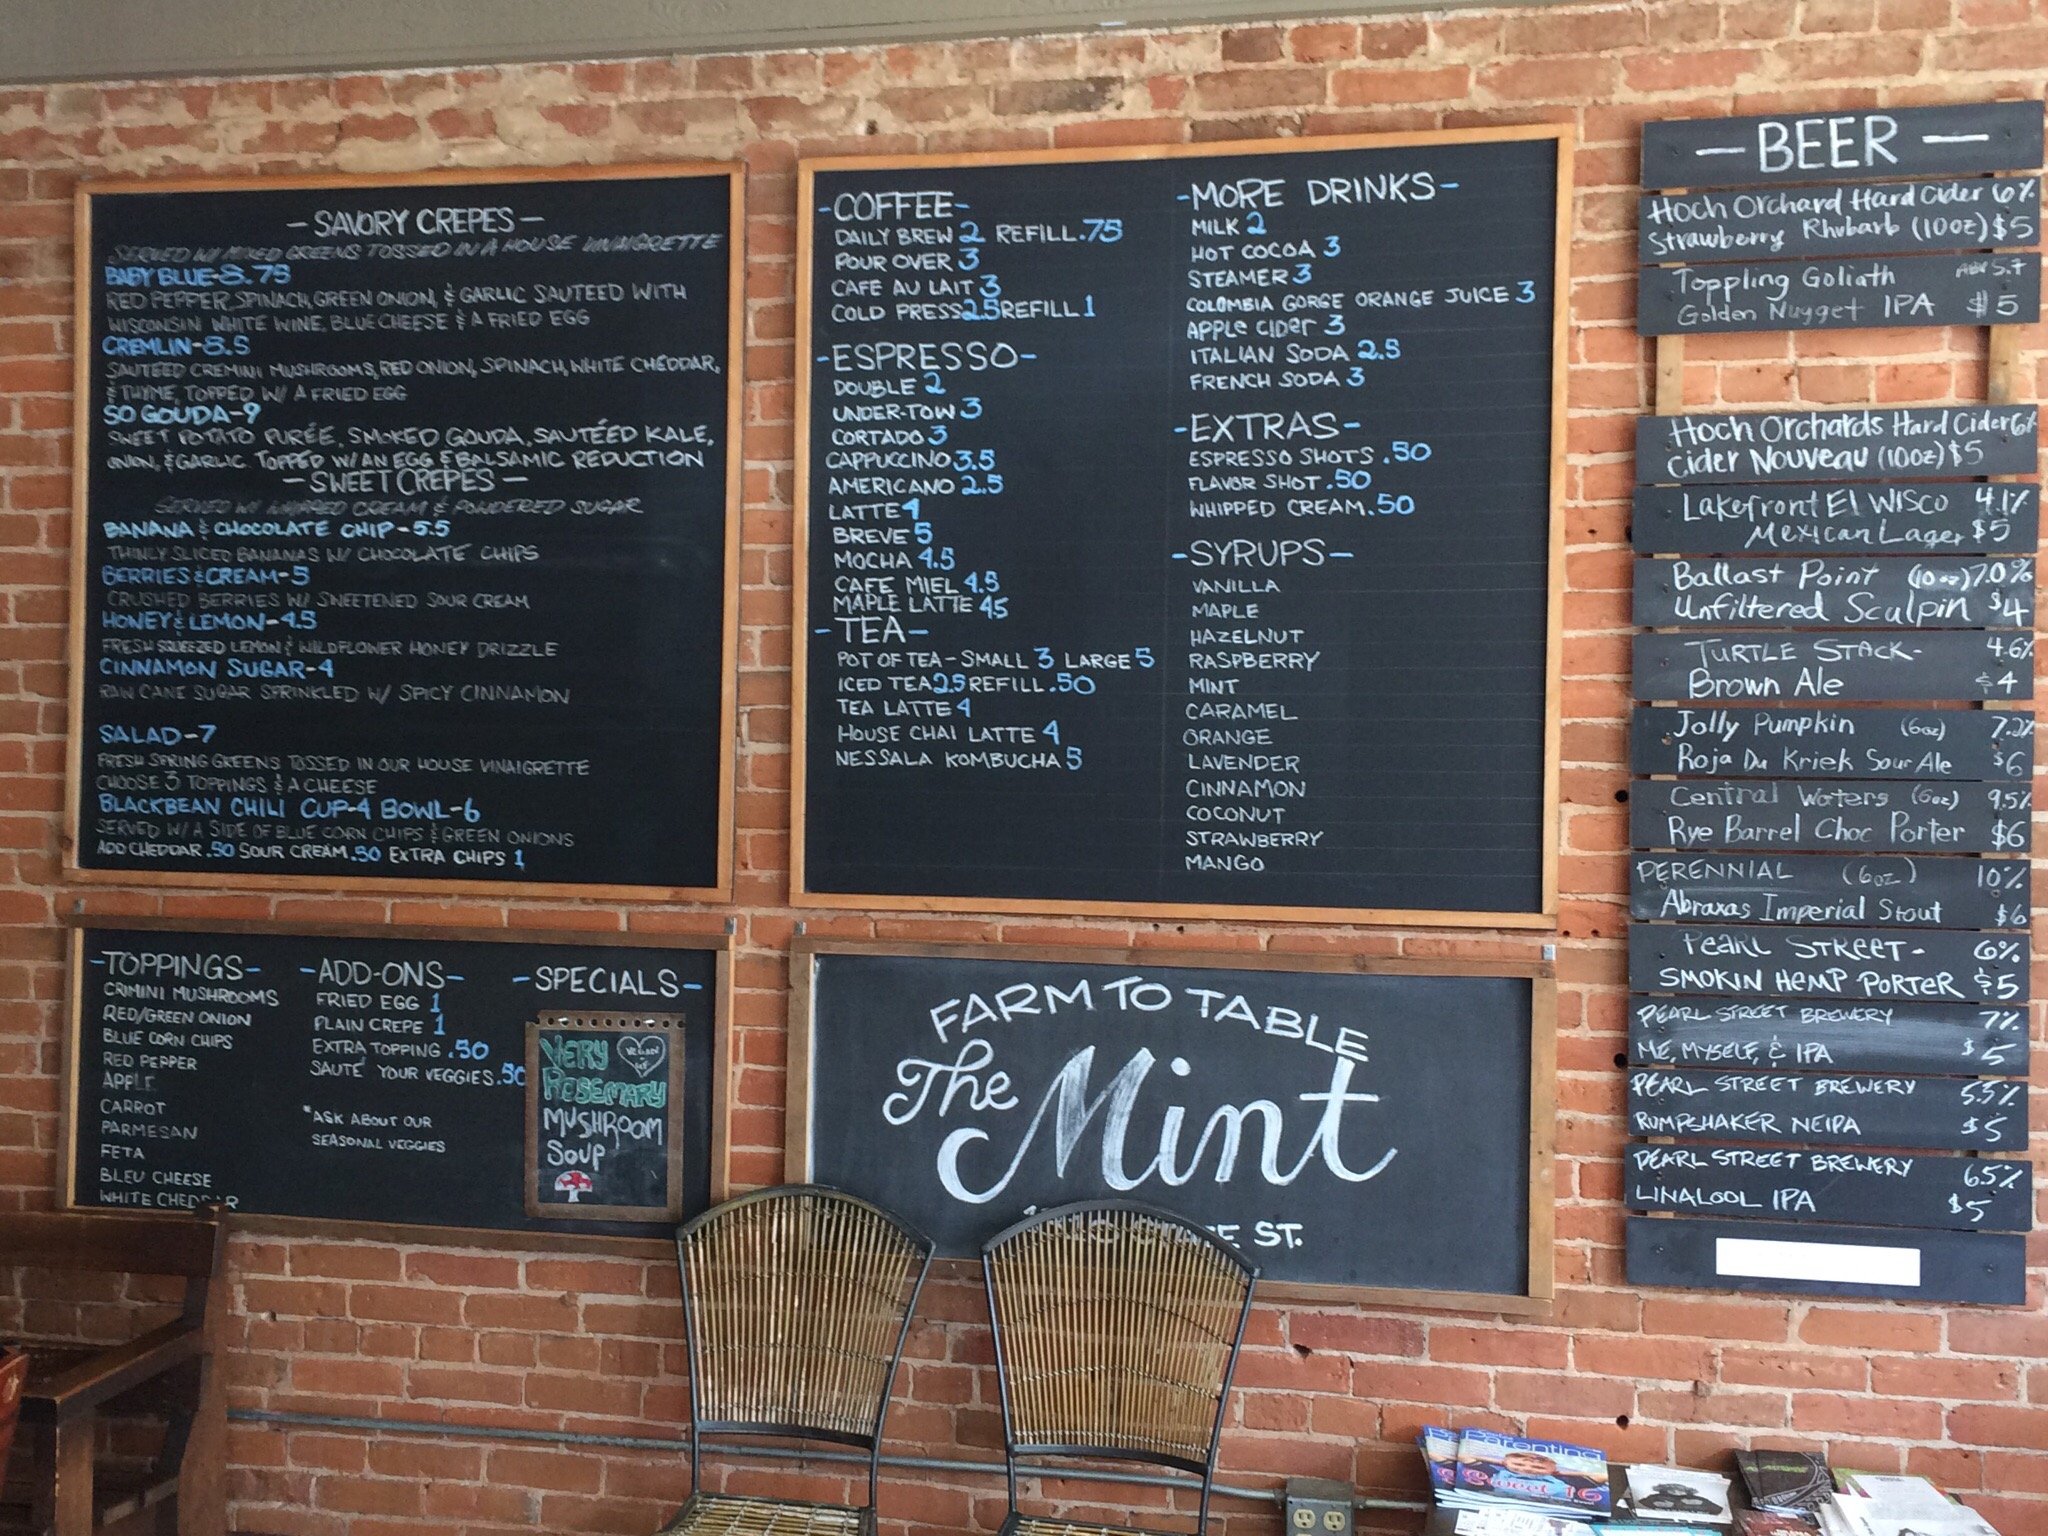 - SAVORY CREPES -
SERVED W/ MIXED GREENS TOSSED IN A HOUSE VINAIGRETTE
BABY BLUE-8.75
RED PEPPER, SPINACH, GREEN ONION, & GARLIC SAUTEED WITH
WISCONSIN WHITE WINE, BLUE CHEESE & A FRIED EGG
CREMLIN-8.5
SAUTEED CREMINI MUSHROOMS, RED ONION, SPINACH, WHITE CHEDDAR,
& THYME, TOPPED W/ A FRIED EGG
SO GOUDA-9
SWEET POTATO PURÉE, SMOKED GOUDA, SAUTÉED KALE,
ONION, & GARLIC TOPPED W/ AN EGG & BALSAMIC REDUCTION
- SWEET CREPES -
SERVED W/ WHIPPED CREAM & POWDERED SUGAR
BANANA & CHOCOLATE CHIP - 5.5
THINLY SLICED BANANAS W/ CHOCOLATE CHIPS
BERRIES & CREAM-5
CRUSHED BERRIES W/ SWEETENED SOUR CREAM
HONEY & LEMON-4.5
FRESH SQUEEZED LEMON & WILDFLOWER HONEY DRIZZLE
CINNAMON SUGAR-4
RAW CANE SUGAR SPRINKLED W/ SPICY CINNAMON
SALAD-7
FRESH SPRING GREENS TOSSED IN OUR HOUSE VINAIGRETTE
CHOOSE 3 TOPPINGS & A CHEESE
BLACKBEAN CHILI CUP-4 BOWL-6
SERVED W/ A SIDE OF BLUE CORN CHIPS & GREEN ONIONS
ADD CHEDDAR .50 SOUR CREAM .50 EXTRA CHIPS 1
-TOPPINGS-
CRIMINI MUSHROOMS
RED/GREEN ONION
BLUE CORN CHIPS
RED PEPPER
APPLE
CARROT
PARMESAN
FETA
BLEU CHEESE
WHITE CHEDDAR
-ADD-ONS-
FRIED EGG 1
PLAIN CREPE 1
EXTRA TOPPING .50
SAUTÉ YOUR VEGGIES .50
*ASK ABOUT OUR
SEASONAL VEGGIES
-SPECIALS-
VERY
VEGAN
ROSEMARY
MUSHROOM
SOUP
-COFFEE-
DAILY BREW 2 REFILL .75
POUR OVER 3
CAFE AU LAIT 3
COLD PRESS 2.5 REFILL 1
-ESPRESSO-
DOUBLE 2
UNDER-TOW 3
CORTADO 3
CAPPUCCINO 3.5
AMERICANO 2.5
LATTE 4
BREVE 5
MOCHA 4.5
CAFE MIEL 4.5
MAPLE LATTE 4.5
-TEA-
POT OF TEA - SMALL 3 LARGE 5
ICED TEA 2.5 REFILL .50
TEA LATTE 4
HOUSE CHAI LATTE 4
NESSALA KOMBUCHA 5
-MORE DRINKS-
MILK 2
HOT COCOA 3
STEAMER 3
COLOMBIA GORGE ORANGE JUICE 3
APPLE CIDER 3
ITALIAN SODA 2.5
FRENCH SODA 3
-EXTRAS-
ESPRESSO SHOTS .50
FLAVOR SHOT .50
WHIPPED CREAM .50
-SYRUPS-
VANILLA
MAPLE
HAZELNUT
RASPBERRY
MINT
CARAMEL
ORANGE
LAVENDER
CINNAMON
COCONUT
STRAWBERRY
MANGO
FARM TO TABLE
The
Mint
ST.
- BEER -
Hoch Orchard Hard Cider 6%
Strawberry Rhubarb (10oz) $5
Toppling Goliath ABV 5.7
Golden Nugget IPA $5
Hoch Orchards Hard Cider 6%
Cider Nouveau (10oz) $5
Lakefront El Wisco 4.1%
Mexican Lager $5
Ballast Point (10oz) 7.0%
Unfiltered Sculpin $4
Turtle Stack- 4.6%
Brown Ale $4
Jolly Pumpkin (6oz) 7.2%
Roja Du Kriek Sour Ale $6
Central Waters (6oz) 9.5%
Rye Barrel Choc Porter $6
PERENNIAL (6oz) 10%
Abraxas Imperial Stout $6
PEARL STREET- 6%
SMOKIN HEMP PORTER $5
PEARL STREET BREWERY 7%
ME, MYSELF, & IPA $5
PEARL STREET BREWERY 5.5%
RUMPSHAKER NEIPA $5
PEARL STREET BREWERY 6.5%
LINALOOL IPA $5
Parenting
Sweet 16